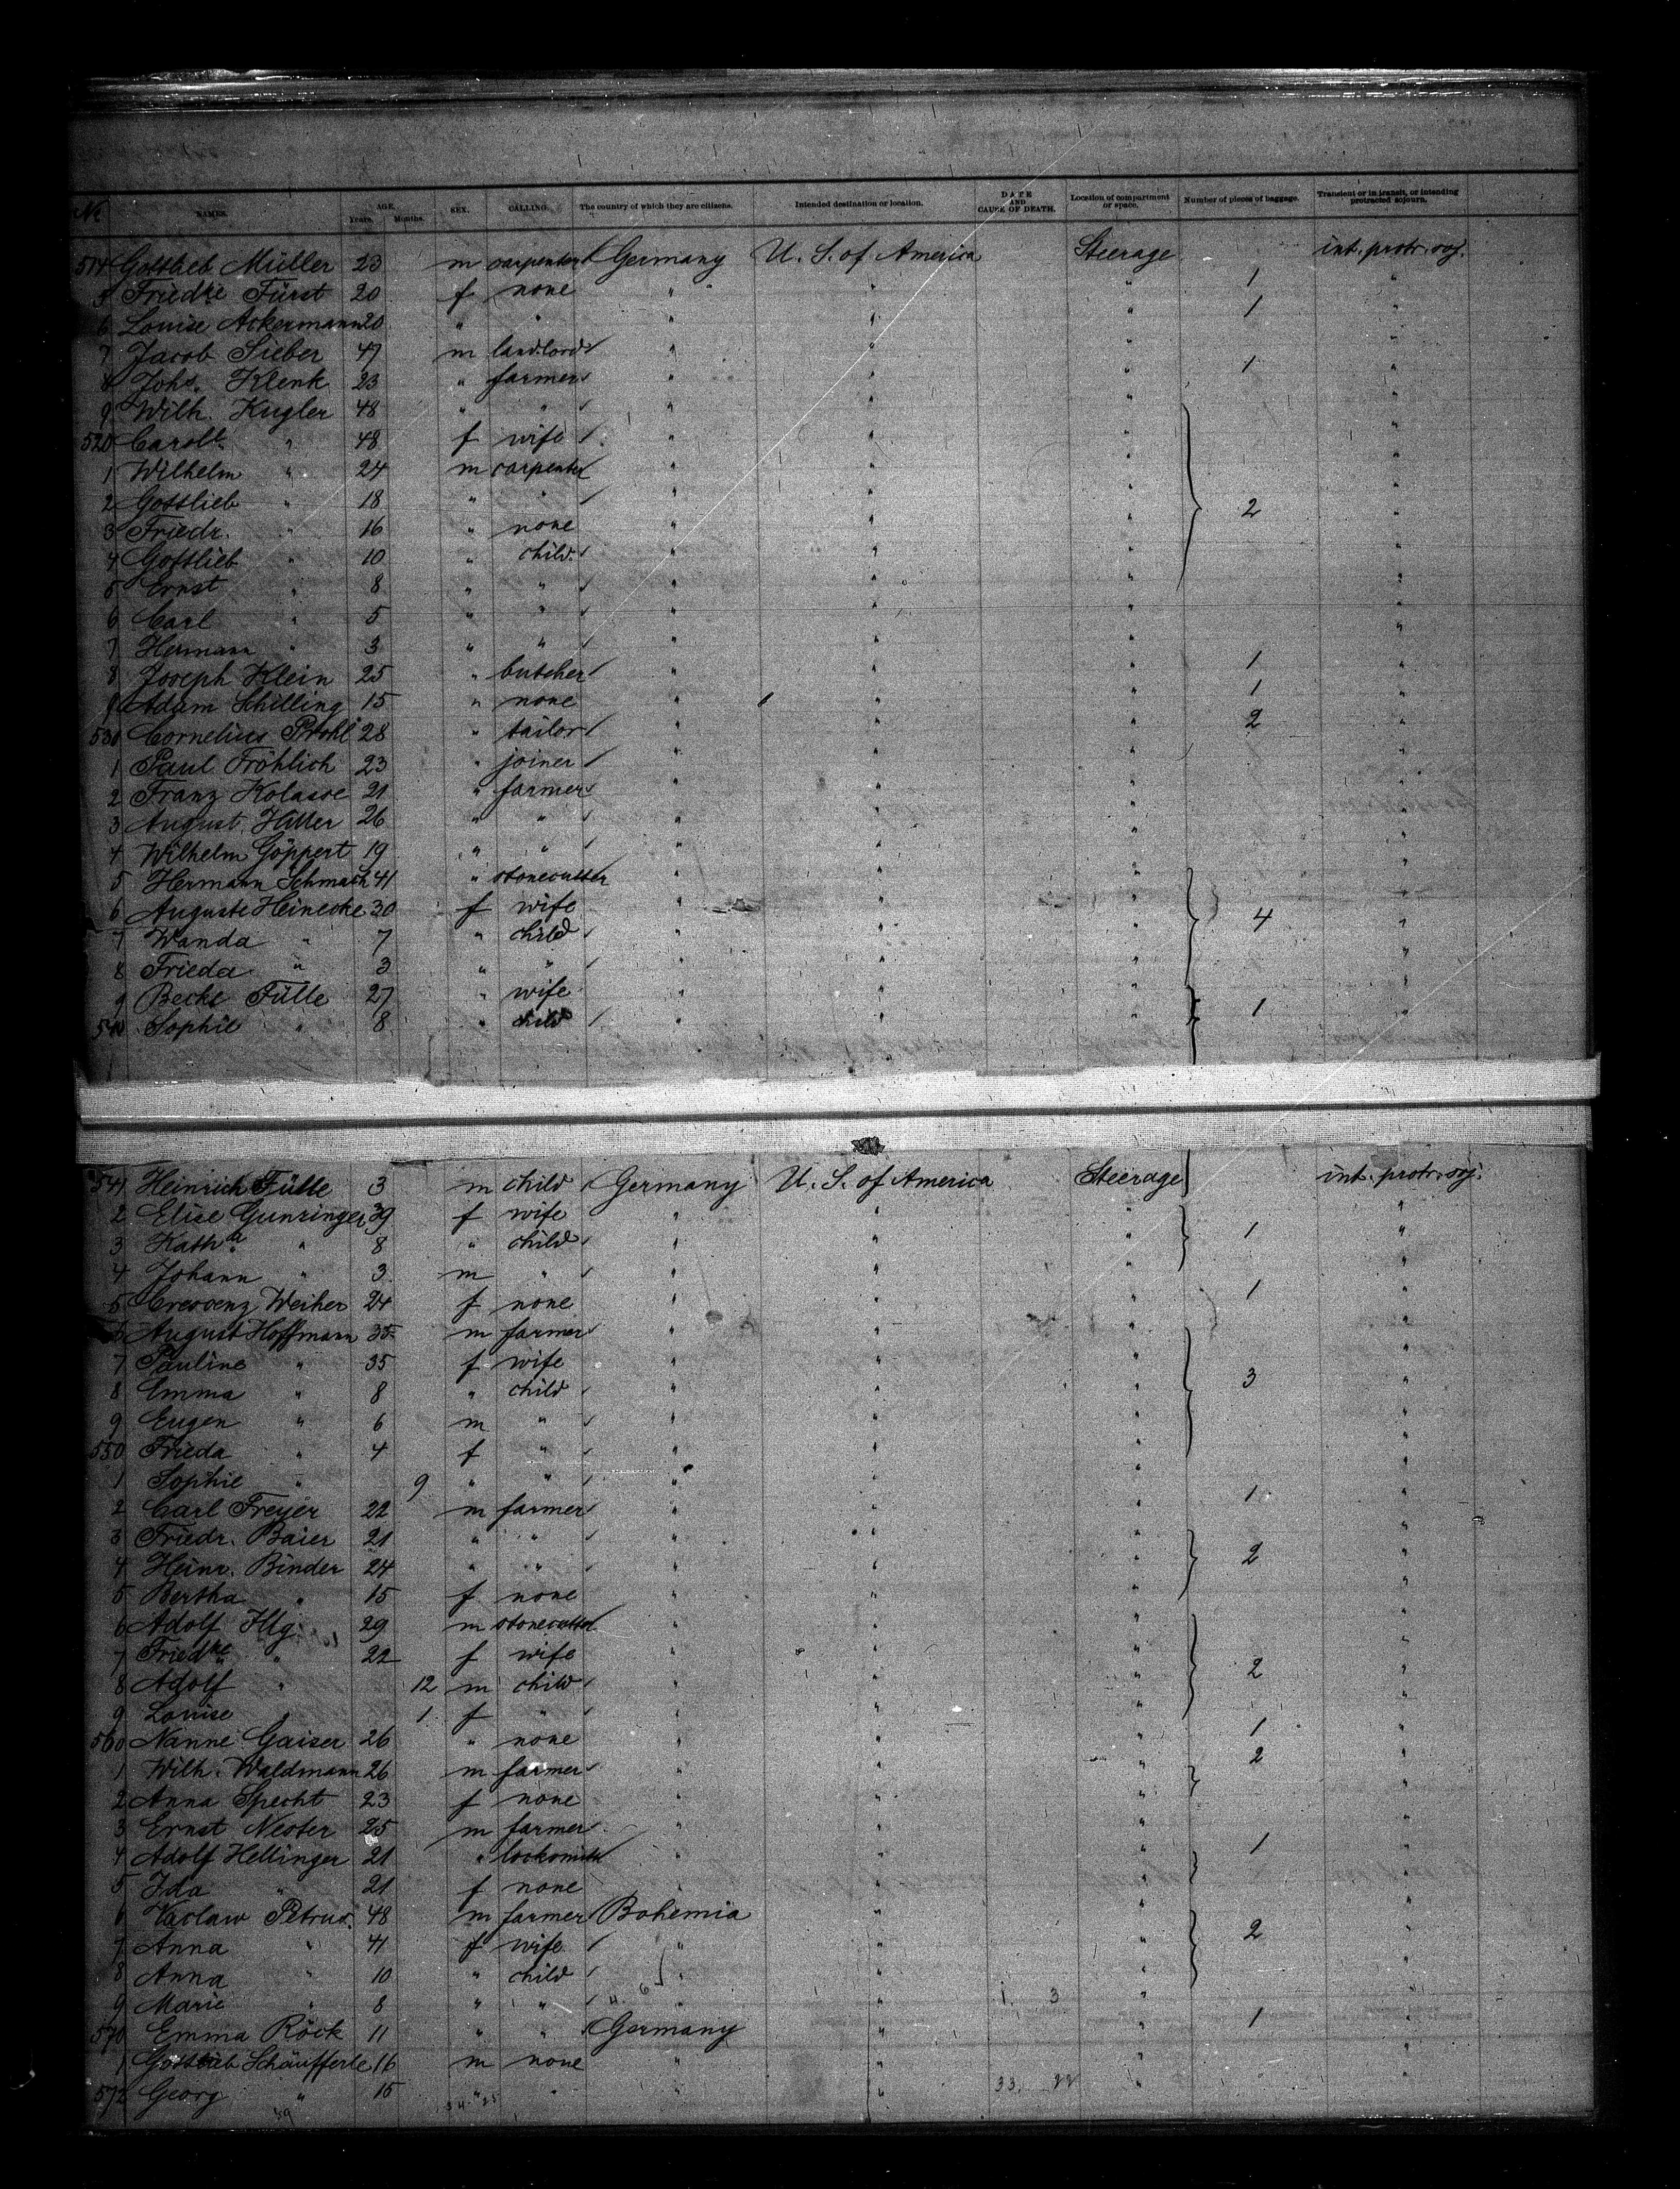 No. NAMES. AGE. Years. Months. SEX. CALLING. The country of which they are citizens. Intended destination or location. DATE AND CAUSE OF DEATH. Location of compartment or space. Number of pieces of baggage. Transient or in transit, or intending protracted sojourn.
514 Gottlieb Müller 23 m carpenter Germany U. S. of America Steerage int. protr. soj.
5 Friedke Fürst 20 f none " " " 1 "
6 Louise Ackermann 20 " " " " " 1 "
7 Jacob Sieber 47 m landlord " " " "
8 Johs. Klenk 23 " farmer " " " 1 "
9 Wilh. Kugler 48 " " " " " "
520 Carole " 48 f wife " " " "
1 Wilhelm " 24 m carpenter " " " "
2 Gottlieb " 18 " " " " " 2 "
3 Friedr. " 16 " none " " " "
4 Gottlieb " 10 " child " " " "
5 Ernst " 8 " " " " " "
6 Carl " 5 " " " " " "
7 Hermann " 3 " " " " " "
8 Joseph Klein 25 " butcher " " " 1 "
9 Adam Schilling 15 " none " " " 1 "
530 Cornelius Prohl 28 " tailor " " " 2 "
1 Paul Fröhlich 23 " joiner " " " "
2 Franz Kolasse 21 " farmer " " " "
3 August Hitter 26 " " " " " "
4 Wilhelm Göppert 19 " " " " " "
5 Hermann Schmach 41 " stonecutter " " " "
6 Auguste Heinecke 30 f wife " " " 4 "
7 Wanda " 7 " child " " " "
8 Frieda " 3 " " " " " "
9 Becke Fülle 27 " wife " " " 1 "
540 Sophie " 8 " child " " " "
1
541 Heinrich Fülle 3 m child Germany U. S. of America Steerage int. protr. soj.
2 Elise Gunzinger 39 f wife " " " "
3 Katha " 8 " child " " " 1 "
4 Johann " 3 m " " " " "
5 Crescenz Weiher 24 f none " " " 1 "
6 August Hoffmann 35 m farmer " " " "
7 Pauline " 35 f wife " " " "
8 Emma " 8 " child " " " 3 "
9 Eugen " 6 m " " " " "
550 Frieda " 4 f " " " " "
1 Sophie " 9 " " " " " "
2 Carl Freyer 22 m farmer " " " 1 "
3 Friedr. Baier 21 " " " " " "
4 Heinr. Binder 24 " " " " " 2 "
5 Bertha " 15 f none " " " "
6 Adolf Illg 29 m stonecutter " " " "
7 Friedke " 22 f wife " " " "
8 Adolf " 12 m child " " " 2 "
9 Louise " 1 f " " " " "
560 Nanne Gaiser 26 " none " " " 1 "
1 Wilh. Waldmann 26 m farmer " " " 2 "
2 Anna Specht 23 f none " " " "
3 Ernst Nester 25 m farmer " " " "
4 Adolf Hellinger 21 " locksmith " " " 1 "
5 Ida " 21 f none " " " "
6 Vaclaw Petrus 48 m farmer Bohemia " " "
7 Anna " 41 f wife " " " 2 "
8 Anna " 10 " child " " " "
9 Marie " 8 " " " " 1. 3 " "
570 Emma Röck 11 " " Germany " " 1 "
1 Gottlieb Schäufferle 16 m none " " " "
572 Georg " 15 " " " " 33. 22 " "